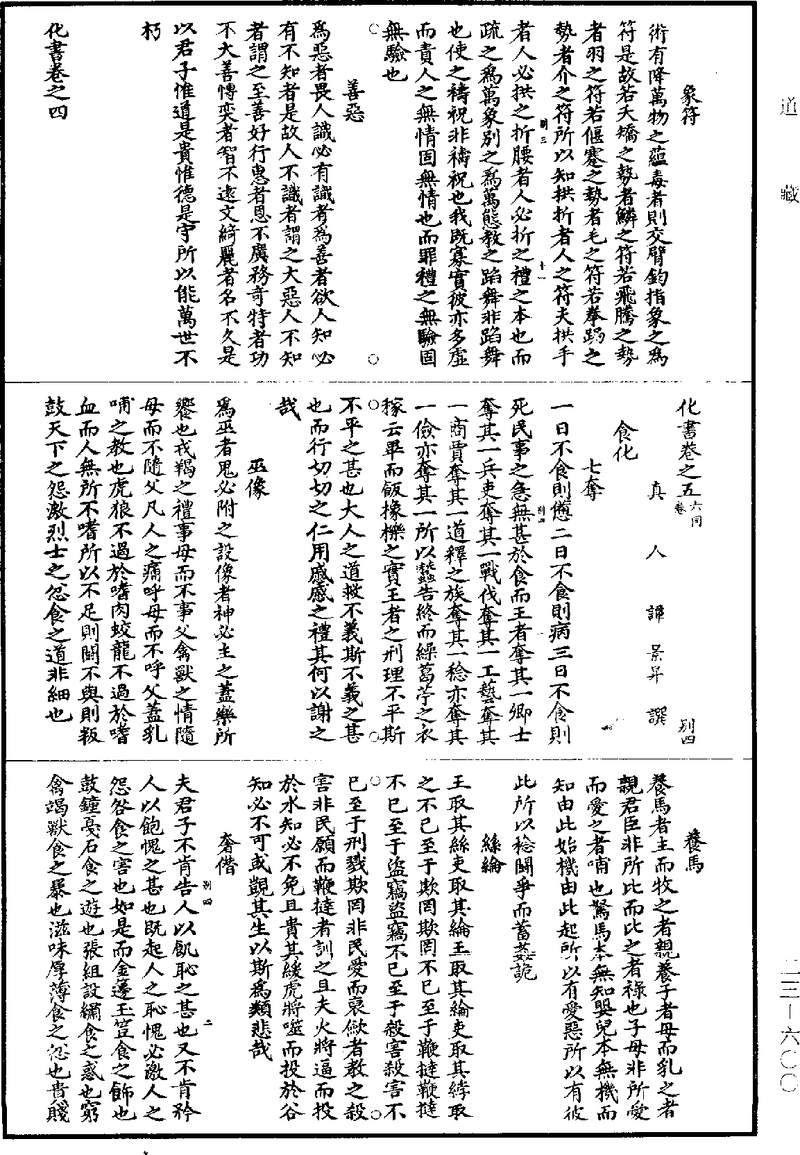 道藏
象符
術有降萬物之蘊毒者則交臂鈎指象之爲
符是故若夭矯之勢者鱗之符若飛騰之勢
者羽之符若偃蹇之勢者毛之符若拳跼之
勢者介之符所以知拱折者人之符夫拱手
者人必拱之折腰者人必折之禮之本也而
疏之爲萬象別之爲萬態教之蹈舞非蹈舞
也使之禱祝非禱祝也我既寡實彼亦多虛
而責人之無情固無情也而罪禮之無驗固
無驗也
善惡
爲惡者畏人識必有識者爲善者欲人知必
有不知者是故人不識者謂之大惡人不知
者謂之至善好行惠者恩不廣務奇特者功
不大善博奕者智不遠文綺麗者名不久是
以君子惟道是貴惟德是守所以能萬世不
朽
化書卷之四
化書卷之五 六同卷
真人譚景昇撰 別四
食化
七奪
一日不食則憊二日不食則病三日不食則
死民事之急無甚於食而王者奪其一卿士
奪其一兵吏奪其一戰伐奪其一工藝奪其
一商賈奪其一道釋之族奪其一稔亦奪其
一儉亦奪其一所以蠶告終而繰葛苧之衣
稼云畢而飯橡櫟之實王者之刑理不平斯
不平之甚也大人之道救不義斯不義之甚
也而行切切之仁用慼慼之禮其何以謝之
哉
巫像
爲巫者鬼必附之設像者神必主之蓋樂所
饗也戎羯之禮事母而不事父禽獸之情隨
母而不隨父凡人之痛呼母而不呼父蓋乳
哺之教也虎狼不過於嗜肉蛟龍不過於嗜
血而人無所不嗜所以不足則鬭不與則叛
鼓天下之怨激烈士之忿食之道非細也
養馬
養馬者主而牧之者親養子者母而乳之者
親君臣非所比而比之者祿也子母非所愛
而愛之者哺也駑馬本無知嬰兒本無機而
知由此始機由此起所以有愛惡所以有彼
此所以稔鬭爭而蓄姦詭
絲綸
王取其絲吏取其綸王取其綸吏取其綍取
之不已至于欺罔欺罔不已至于鞭撻鞭撻
不已至于盜竊盜竊不已至于殺害殺害不
已至于刑戮欺罔非民愛而裒斂者教之殺
害非民願而鞭撻者訓之且夫火將逼而投
於水知必不免且貴其緩虎將噬而投於谷
知必不可或覬其生以斯爲類悲哉
奢僭
夫君子不肯告人以飢恥之甚也又不肯矜
人以飽愧之甚也既起人之恥愧必激人之
怨咎食之害也如是而金籩玉豆食之飾也
鼓鐘戞石食之遊也張組設繡食之惑也窮
禽竭獸食之暴也滋味厚薄食之忿也貴賤
二三－六〇〇